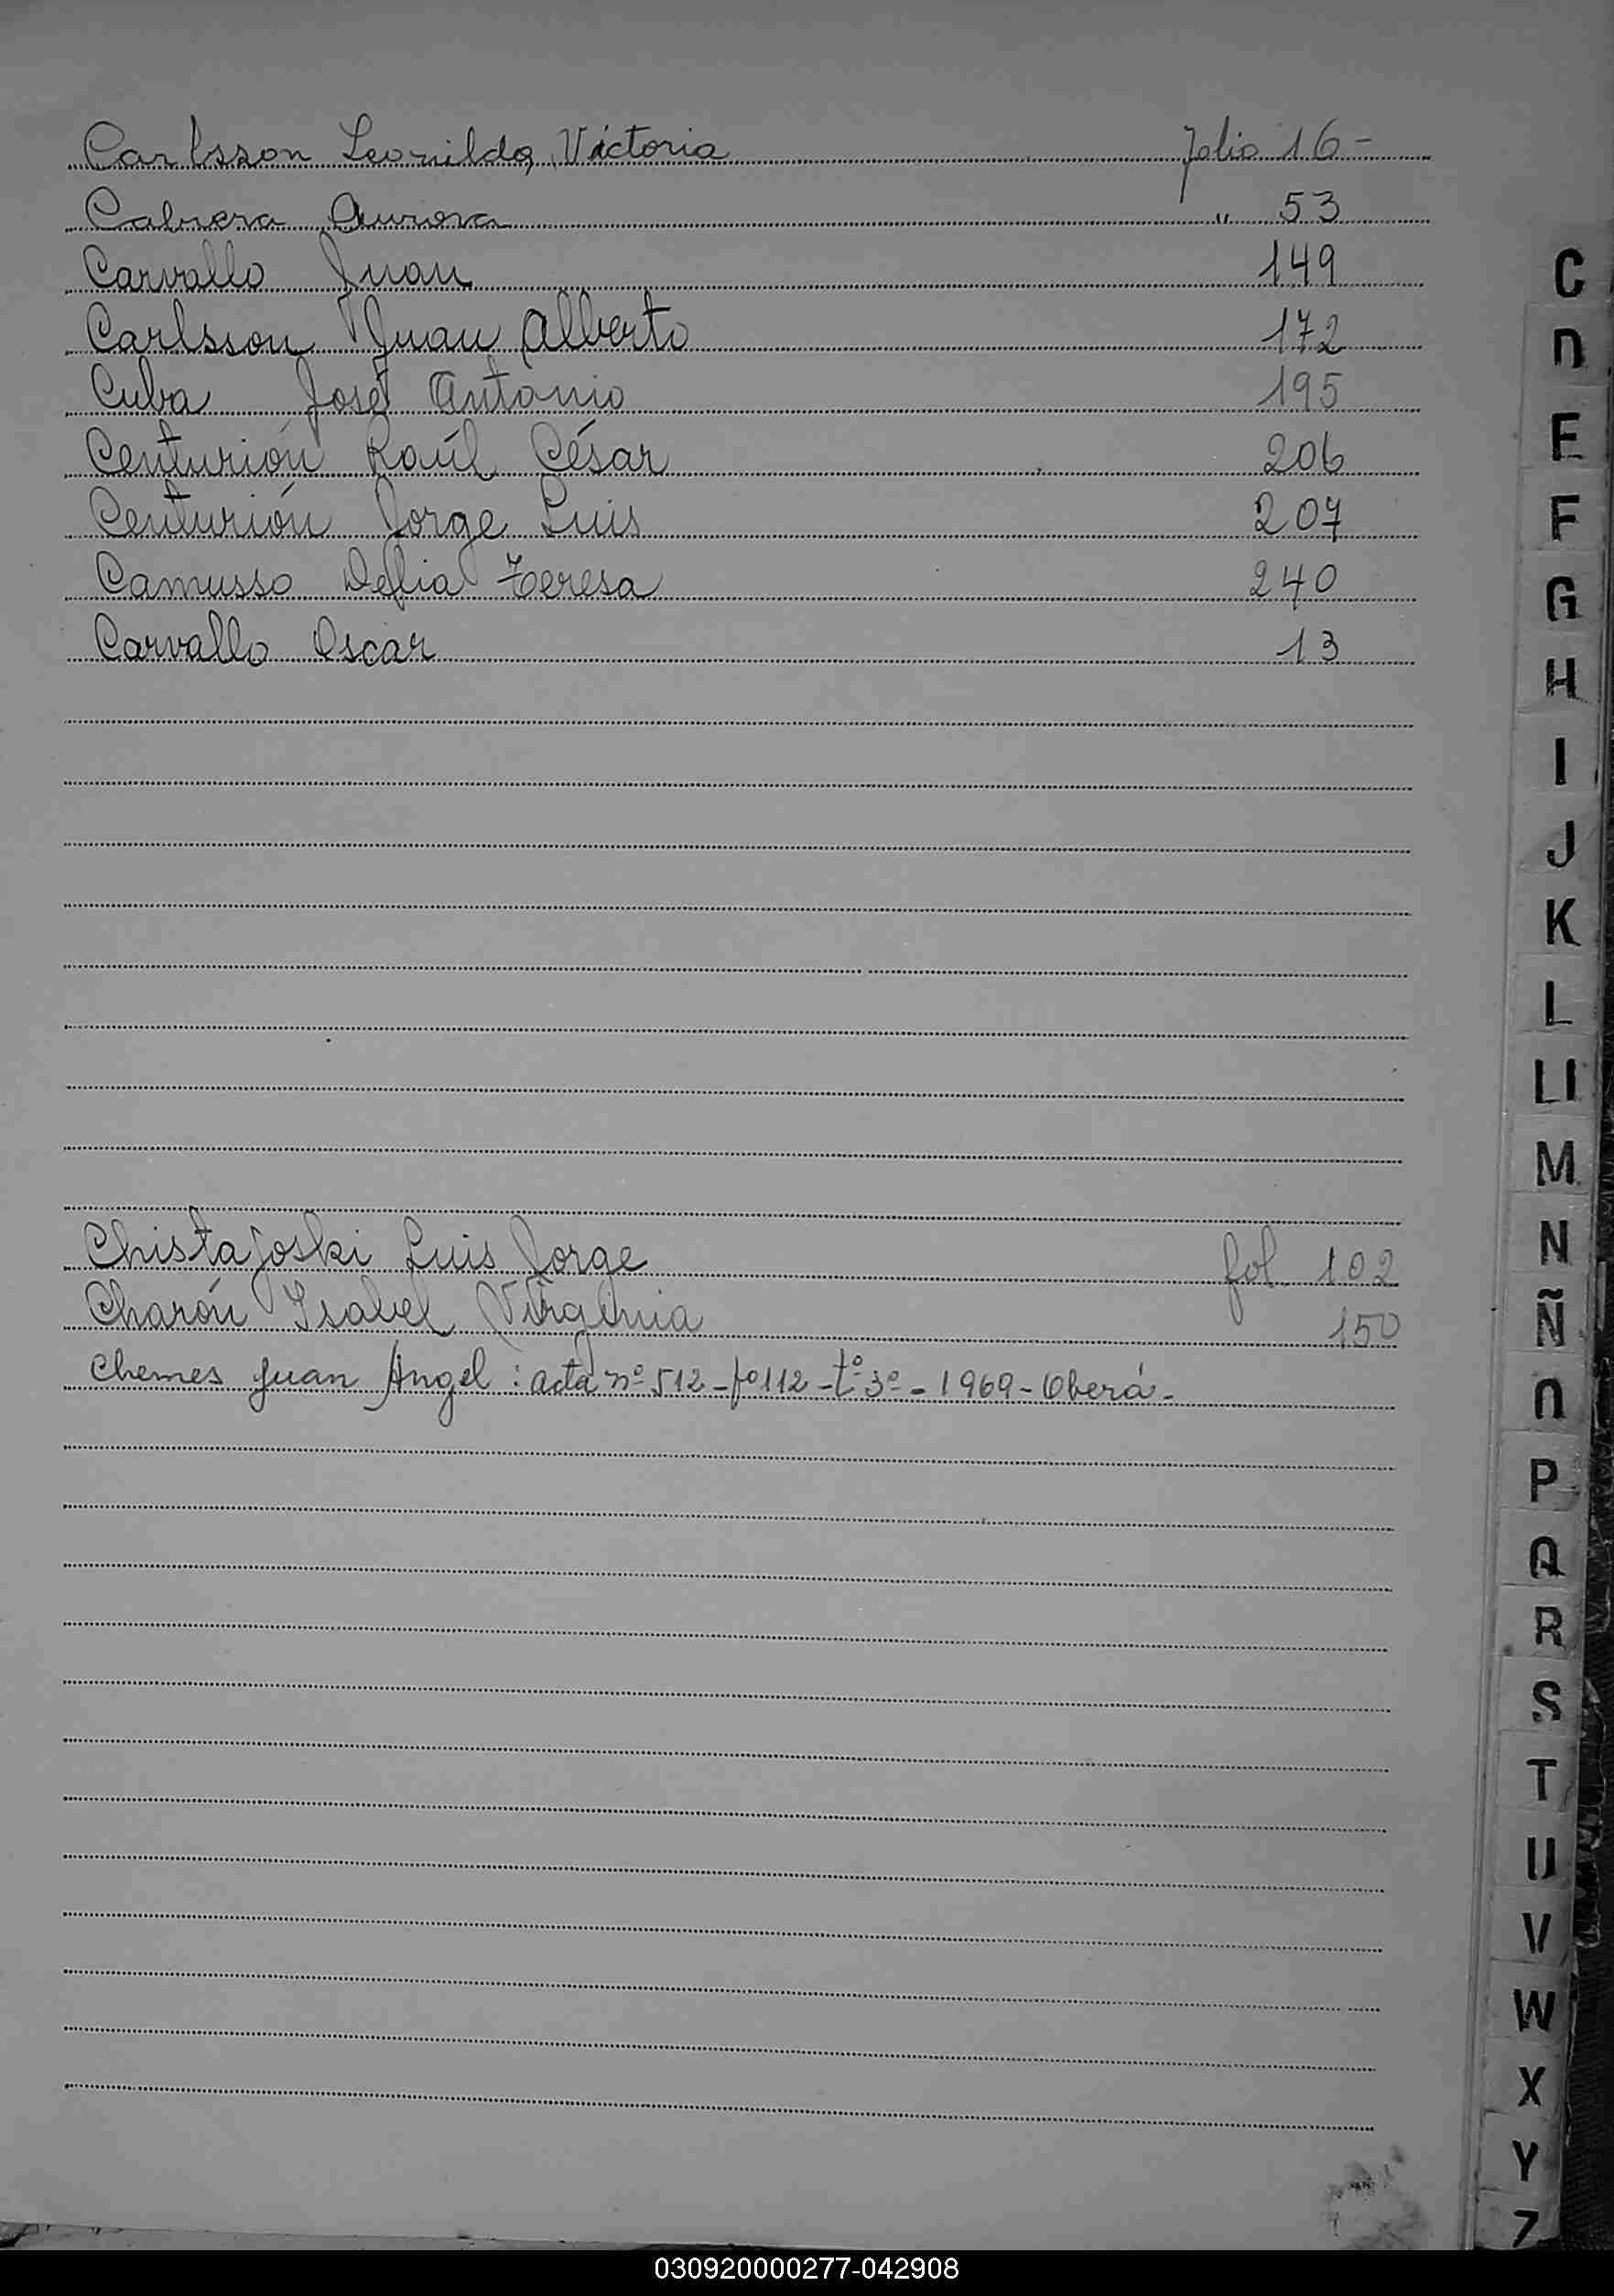 Carlsson Leonilda Victoria folio 16-
Cabrera Aurora " 53
Carvallo Juan 149
Carlsson Juan Alberto 172
Cuba José Antonio 195
Centurión Raúl César 206
Centurión Jorge Luis 207
Camusso Delia Teresa 240
Carvallo Oscar 13
Chistajoski Luis Jorge fol 102
Charón Isabel Virginia 150
Chemes Juan Ángel: acta nº 512-fº112-tº3º-1969-Oberá-
C
D
E
F
G
H
I
J
K
L
Ll
M
N
Ñ
O
P
Q
R
S
T
U
V
W
X
Y
Z
030920000277-042908